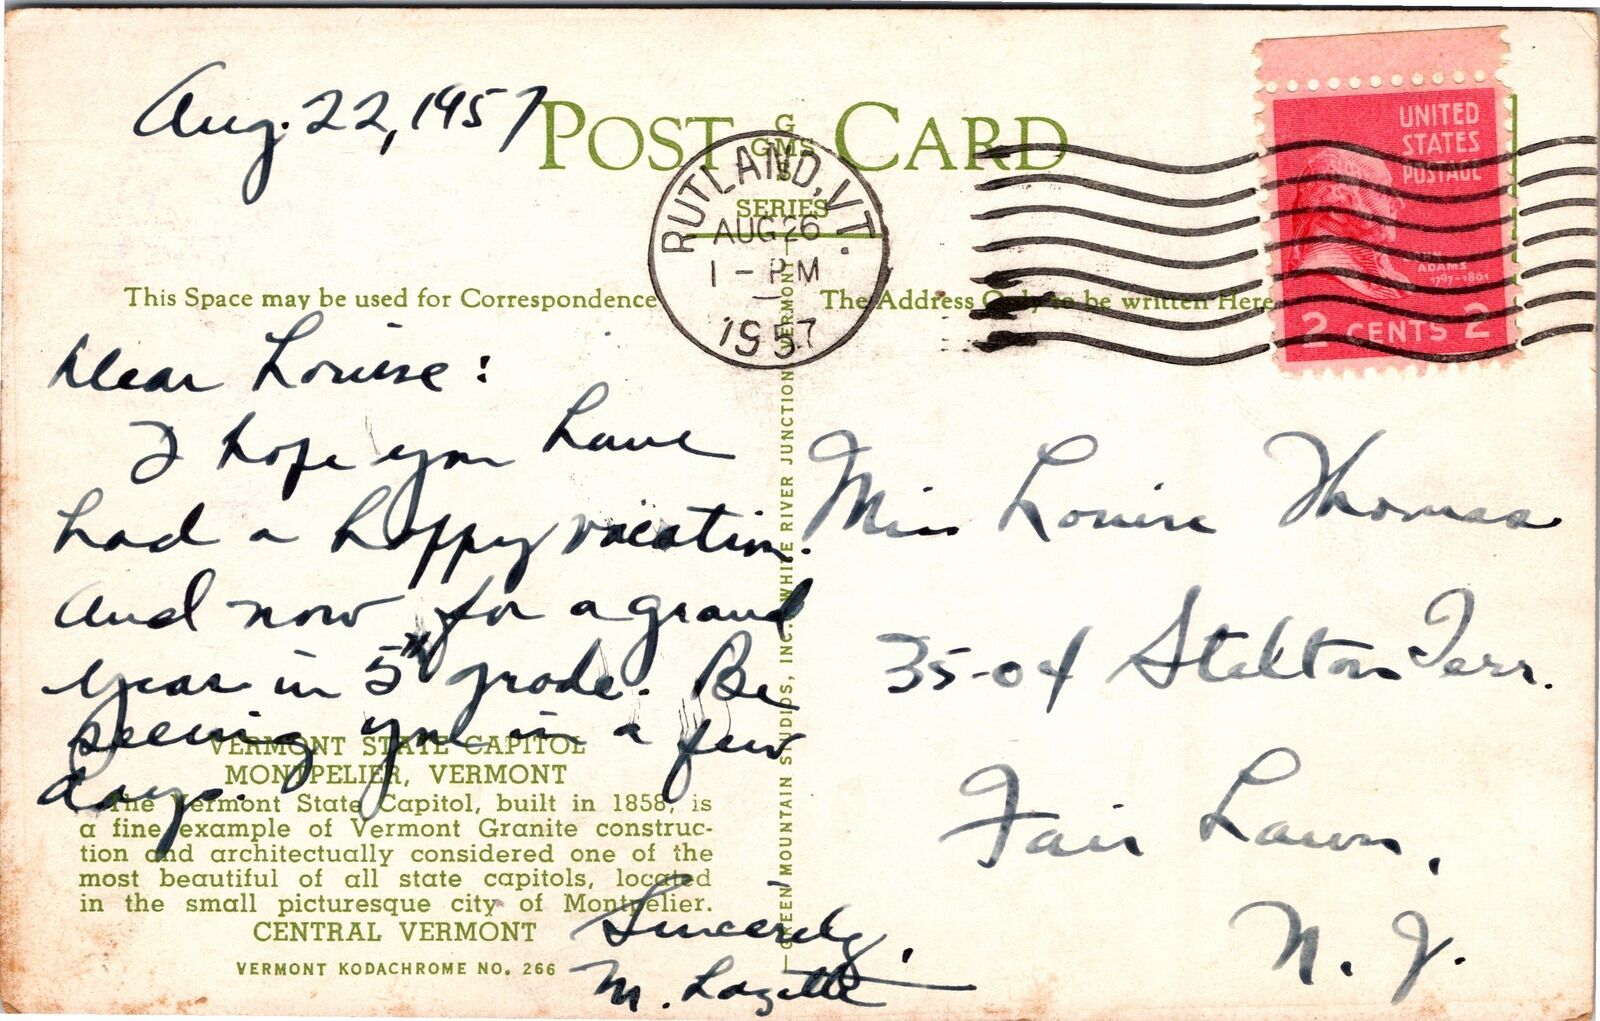 Aug. 22, 1957
POST CARD
G
GMS
S
SERIES
RUTLAND, VT.
AUG 26
1 - PM
1957
UNITED
STATES
POSTAGE
JOHN
ADAMS
1797-1801
2 CENTS 2
This Space may be used for Correspondence
The Address Only to be written Here
Dear Louise:
I hope you have
had a happy vacation.
And now for a grand
year in 5th grade. Be
seeing you in a few
days.
Sincerely,
M. Lazette
VERMONT STATE CAPITOL
MONTPELIER, VERMONT
The Vermont State Capitol, built in 1858, is
a fine example of Vermont Granite construc-
tion and architectually considered one of the
most beautiful of all state capitols, located
in the small picturesque city of Montpelier.
CENTRAL VERMONT
VERMONT KODACHROME NO. 266
GREEN MOUNTAIN STUDIOS, INC. WHITE RIVER JUNCTION, VERMONT
Miss Louise Thomas
35-04 Stelton Terr.
Fair Lawn,
N. J.